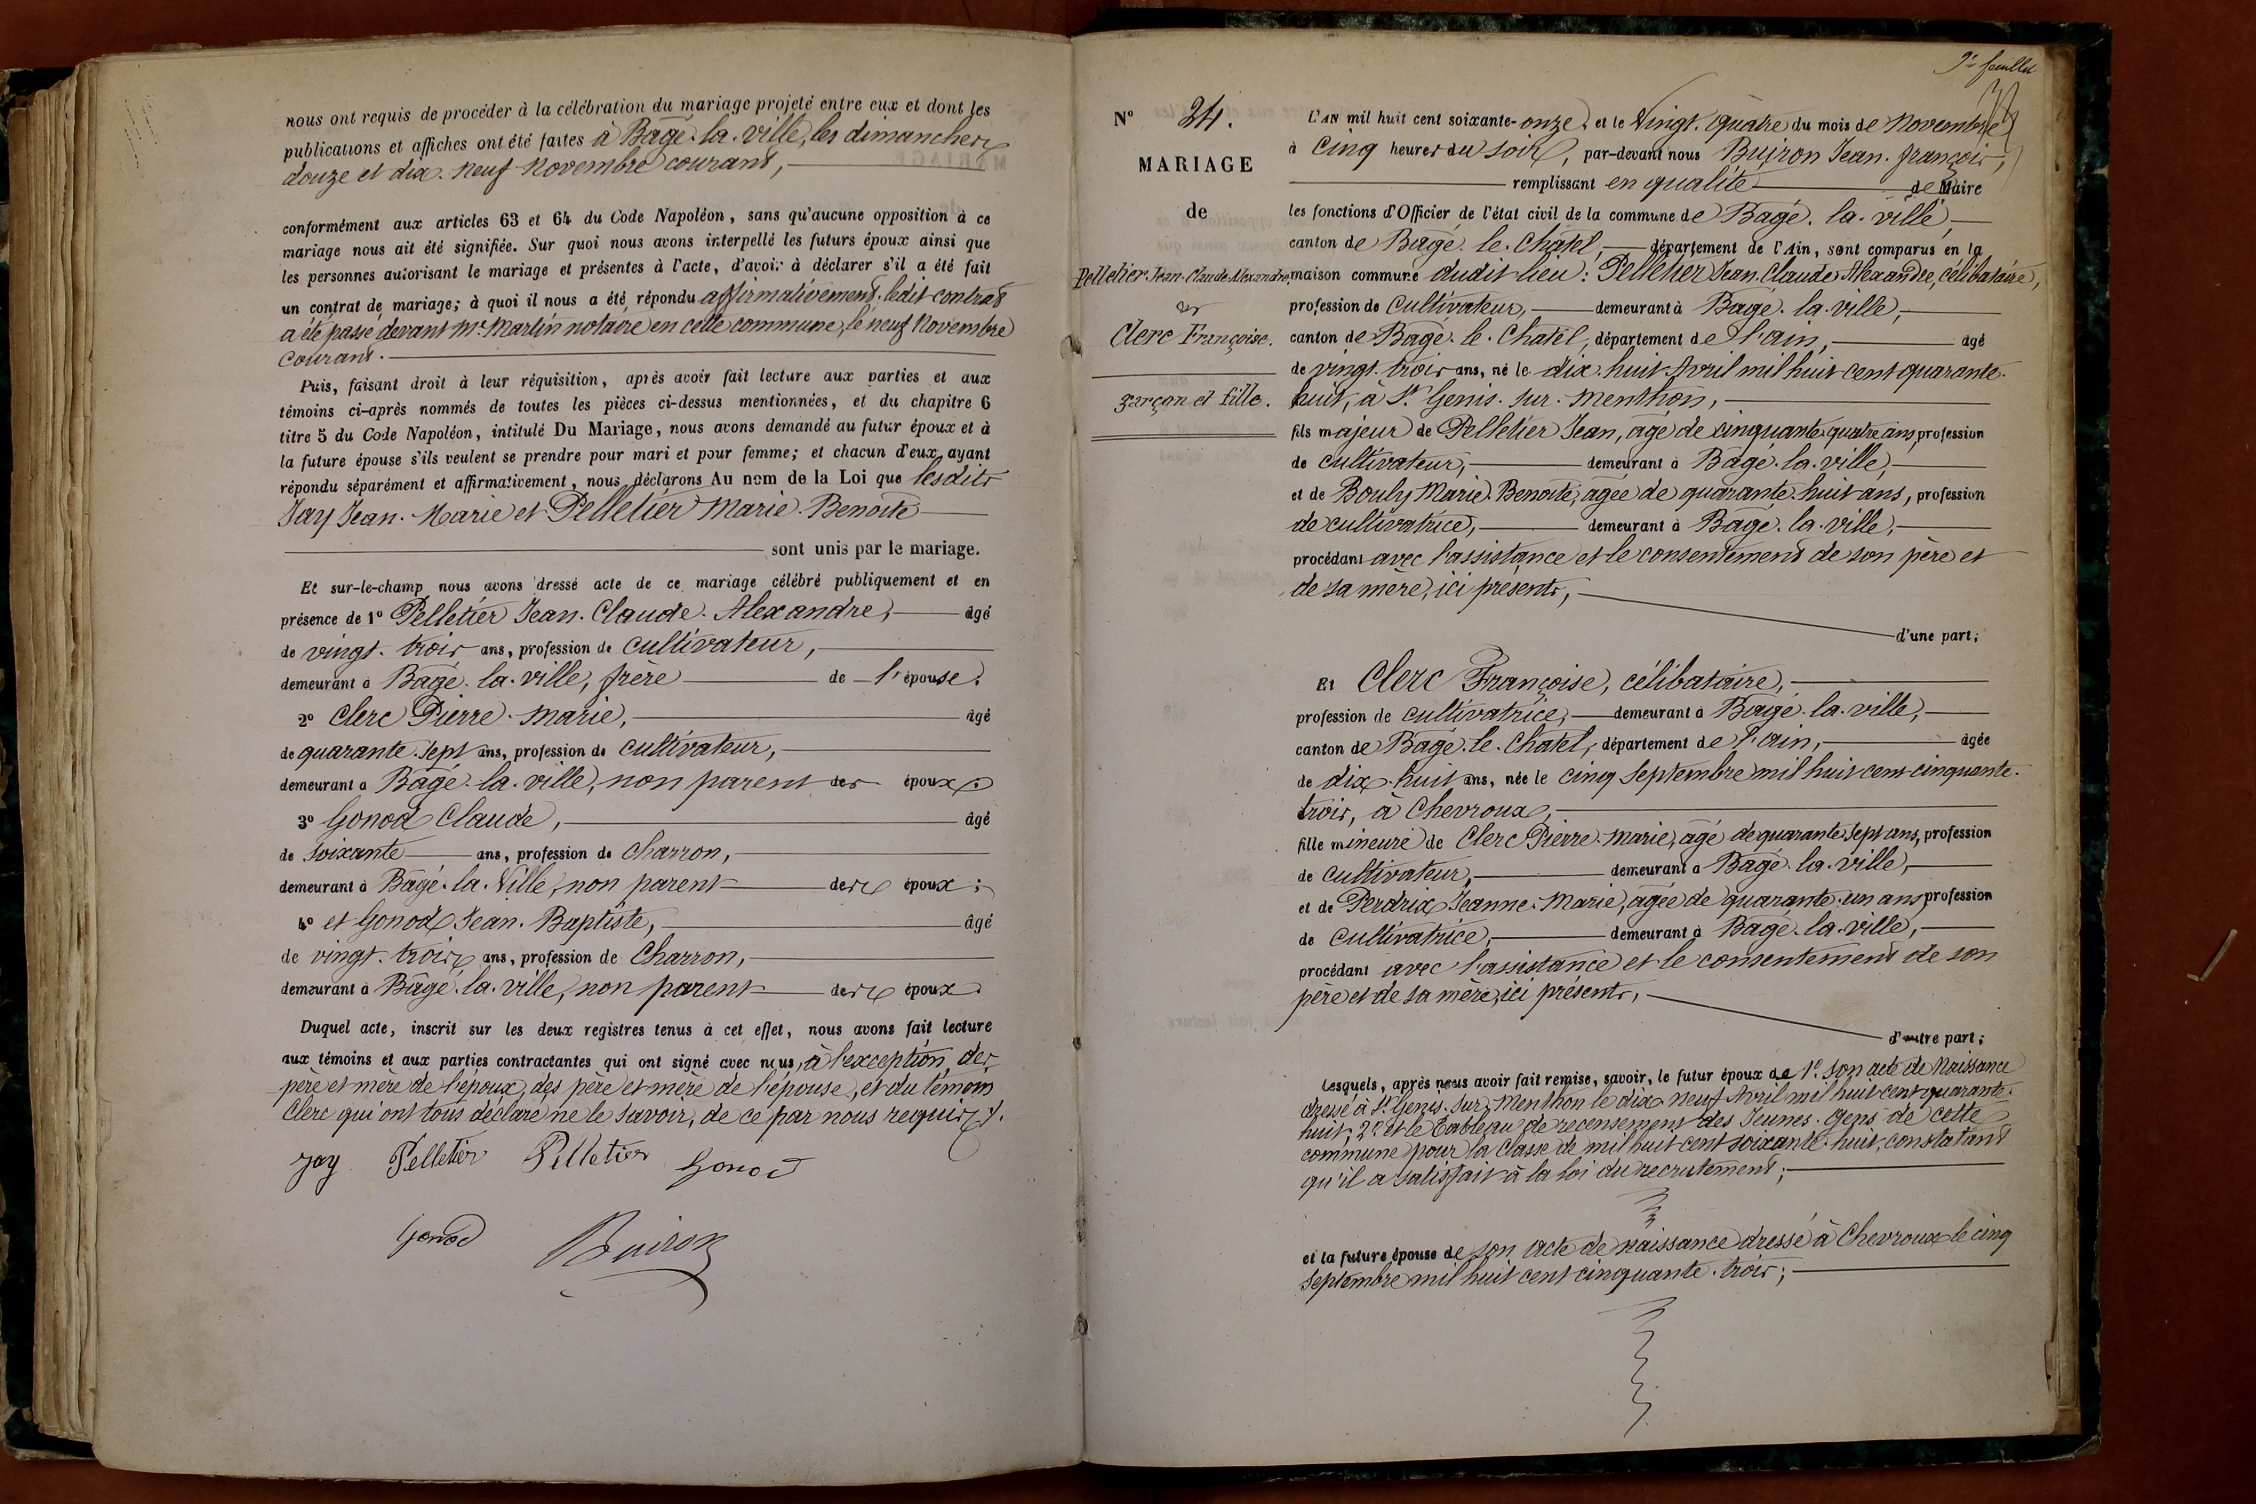 nous ont requis de procéder à la célébration du mariage projeté entre eux et dont les
publications et affiches ont été faites à Bâgé-la-ville, les dimanches
douze et dix-neuf Novembre courant,
conformément aux articles 63 et 64 du Code Napoléon, sans qu'aucune opposition à ce
mariage nous ait été signifiée. Sur quoi nous avons interpellé les futurs époux ainsi que
les personnes autorisant le mariage et présentes à l'acte, d'avoir à déclarer s'il a été fait
un contrat de mariage; à quoi il nous a été répondu affirmativement. ledit contrat
a été passé devant Me Martin notaire en cette commune, le neuf Novembre
courant.
Puis, faisant droit à leur réquisition, après avoir fait lecture aux parties et aux
témoins ci-après nommés de toutes les pièces ci-dessus mentionnées, et du chapitre 6
titre 5 du Code Napoléon, intitulé Du Mariage, nous avons demandé au futur époux et à
la future épouse s'ils veulent se prendre pour mari et pour femme; et chacun d'eux ayant
répondu séparément et affirmativement, nous déclarons Au nom de la Loi que lesdits
Jay Jean-Marie et Pelletier Marie-Benoite
sont unis par le mariage.
Et sur-le-champ nous avons dressé acte de ce mariage célébré publiquement et en
présence de 1° Pelletier Jean-Claude-Alexandre, âgé
de vingt-trois ans, profession de cultivateur,
demeurant à Bâgé-la-ville, frère de l'épouse.
2° Clerc Pierre-Marie, âgé
de quarante-sept ans, profession de cultivateur,
demeurant à Bâgé-la-ville, non parent des époux.
3° Gonod Claude, âgé
de soixante ans, profession de charron,
demeurant à Bâgé-la-Ville, non parent des époux;
4° et Gonod Jean-Baptiste, âgé
de vingt-trois ans, profession de Charron,
demeurant à Bâgé-la-ville, non parent des époux.
Duquel acte, inscrit sur les deux registres tenus à cet effet, nous avons fait lecture
aux témoins et aux parties contractantes qui ont signé avec nous, à l'exception des
père et mère de l'époux, des père et mère de l'épouse, et du témoin
Clerc qui ont tous déclaré ne le savoir, de ce par nous requis.
Jay Pelletier Pelletier Gonod
Gonod Buiron
9e feuillet
N° 24.
MARIAGE
de
Pelletier Jean-Claude Alexandre
et
Clerc Françoise.
garçon et fille.
L'AN mil huit cent soixante-onze, et le Vingt-Quatre du mois de Novembre
à cinq heures du soir, par-devant nous Buiron Jean-François,
remplissant en qualité de Maire
les fonctions d'Officier de l'état civil de la commune de Bâgé-la-ville,
canton de Bâgé-le-Châtel, département de l'Ain, sont comparus en la
maison commune dudit lieu: Pelletier Jean-Claude Alexandre, célibataire,
profession de cultivateur, demeurant à Bâgé-la-ville,
canton de Bâgé-le-Châtel, département de l'ain, âgé
de vingt-trois ans, né le dix-huit Avril mil huit cent quarante-
huit, à St Genis-sur-Menthon,
fils majeur de Pelletier Jean, âgé de cinquante-quatre ans, profession
de cultivateur, demeurant à Bâgé-la-ville,
et de Bouly Marie-Benoite, âgée de quarante-huit ans, profession
de cultivatrice, demeurant à Bâgé-la-ville,
procédant avec l'assistance et le consentement de son père et
de sa mère, ici présents,
d'une part;
Et Clerc Françoise, célibataire,
profession de cultivatrice, demeurant à Bâgé-la-ville,
canton de Bâgé-le-Châtel, département de l'ain, âgée
de dix-huit ans, née le cinq Septembre mil huit cent cinquante-
trois, à Chevroux,
fille mineure de Clerc Pierre-Marie, âgé de quarante-sept ans, profession
de cultivateur, demeurant à Bâgé-la-ville,
et de Perdrix Jeanne-Marie, âgée de quarante-un ans, profession
de cultivatrice, demeurant à Bâgé-la-ville,
procédant avec l'assistance et le consentement de son
père et de sa mère, ici présents,
d'autre part;
Lesquels, après nous avoir fait remise, savoir, le futur époux de 1° son acte de Naissance
dressé à St Genis-sur-Menthon le dix-neuf Avril mil huit cent quarante-
huit, 2° et le Tableau de recensement des Jeunes-Gens de cette
commune pour la Classe de mil huit cent soixante-huit, constatant
qu'il a satisfait à la Loi du recrutement;
et la future épouse de son acte de naissance dressé à Chevroux le cinq
Septembre mil huit cent cinquante-trois;